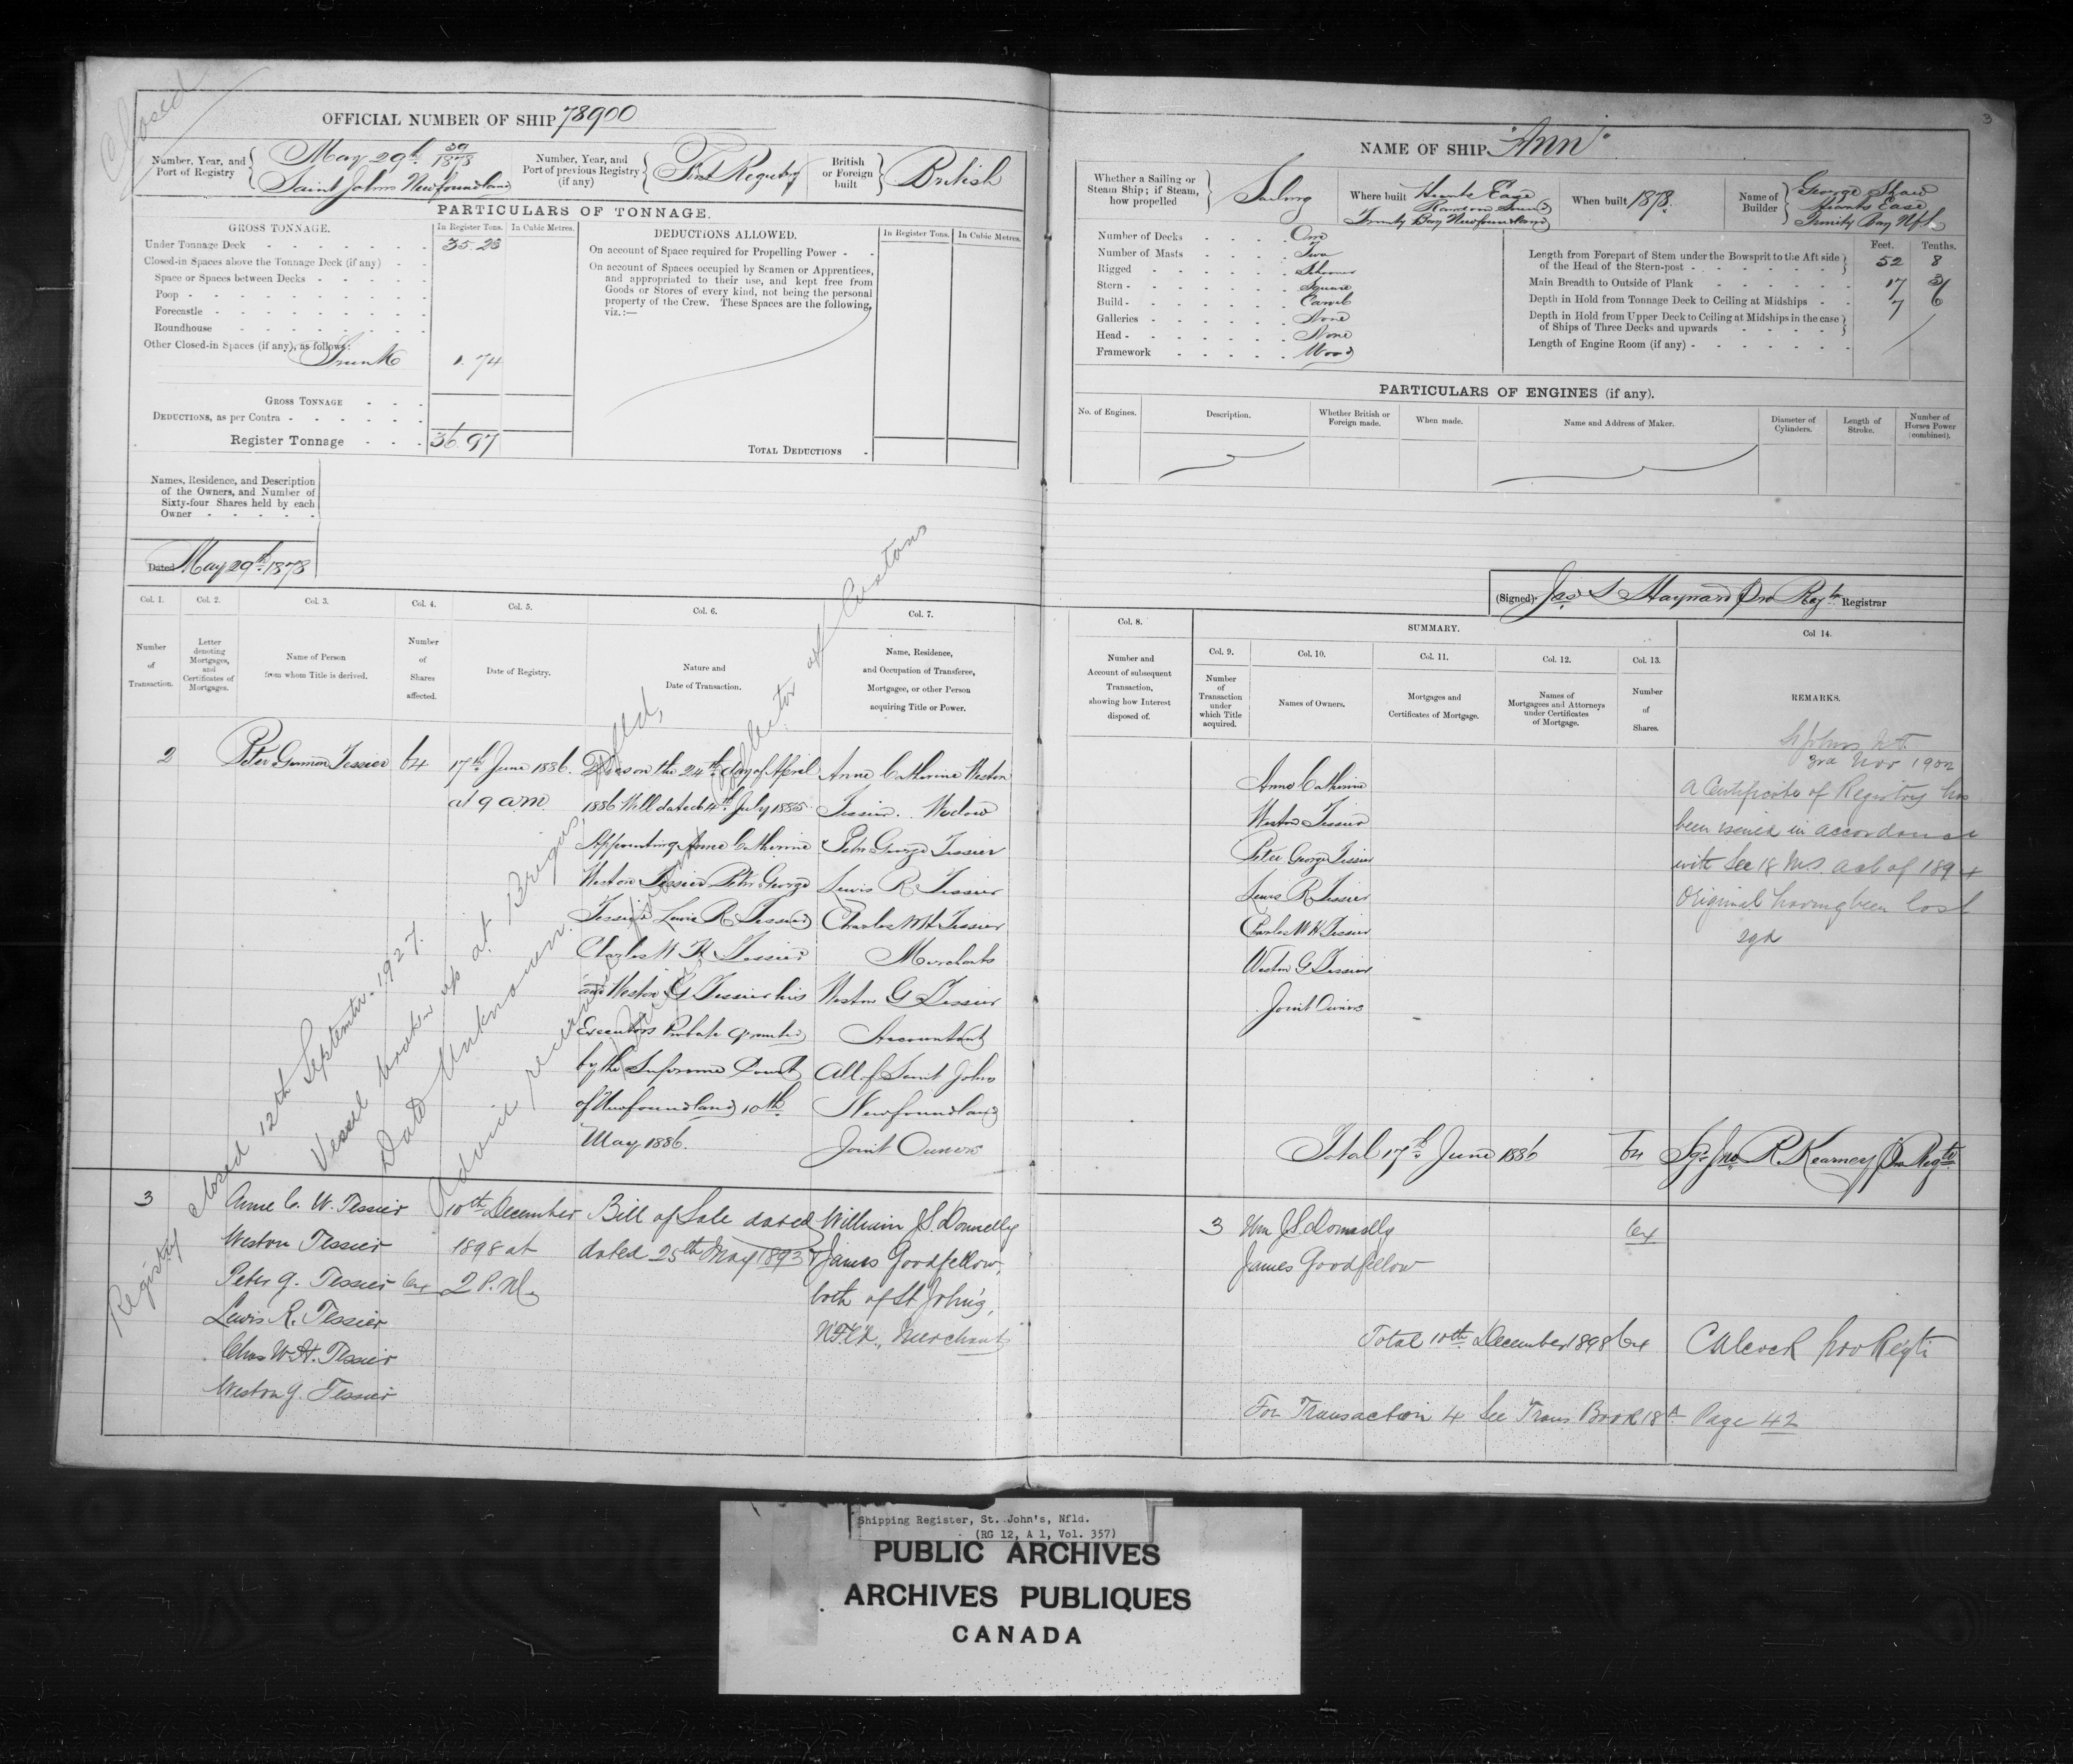 Closed
OFFICIAL NUMBER OF SHIP 78900
Number, Year, and Port of Registry
May 29th 39/1878
Saint Johns Newfoundland
Number, Year, and Port of previous Registry (if any)
First Registry
British or Foreign built
British
PARTICULARS OF TONNAGE.
GROSS TONNAGE.
In Register Tons. In Cubic Metres.
Under Tonnage Deck 35.23
Closed-in Spaces above the Tonnage Deck (if any)
Space or Spaces between Decks
Poop
Forecastle
Roundhouse
Other Closed-in Spaces (if any), as follows:
Trunk 1.74
GROSS TONNAGE
DEDUCTIONS, as per Contra
Register Tonnage 36.97
DEDUCTIONS ALLOWED.
In Register Tons. In Cubic Metres.
On account of Space required for Propelling Power
On account of Spaces occupied by Seamen or Apprentices,
and appropriated to their use, and kept free from
Goods or Stores of every kind, not being the personal
property of the Crew. These Spaces are the following,
viz.:—
TOTAL DEDUCTIONS
Names, Residence, and Description
of the Owners, and Number of
Sixty-four Shares held by each
Owner
Dated May 29th 1878
Col. 1. Col. 2. Col. 3. Col. 4. Col. 5. Col. 6. Col. 7.
Number of Transaction.
Letter denoting Mortgages, and Certificates of Mortgages.
Name of Person from whom Title is derived.
Number of Shares affected.
Date of Registry.
Nature and Date of Transaction.
Name, Residence, and Occupation of Transferee, Mortgagee, or other Person acquiring Title or Power.
2
Peter Tessier
64
17th June 1886.
at 9 am
Died on the 24th day of April
1886 Will dated 4th July 1885
Appointing Anne Catherine
Weston Tessier Peter George
Tessier Lewis R Tessier
Charles W H Tessier
and Weston G Tessier his
Executors Probate granted
by the Supreme Court
of Newfoundland 10th
May 1886.
Anne Catherine Weston
Tessier. Widow
Peter George Tessier
Lewis R Tessier
Charles W H Tessier
Merchants
Weston G Tessier
Accountant
All of Saint Johns
Newfoundland
Joint Owners
3
Anne C. W. Tessier
Weston Tessier
Peter G. Tessier
Lewis R. Tessier
Chas W. H. Tessier
Weston G. Tessier
64
10th December
1898 at
2 P.M.
Bill of Sale dated
dated 25th May 1893
William J S Donnelly
& James Goodfellow,
both of St John's,
NFLd, Merchants
Registry closed 12th September 1927.
Vessel broken up at Brigus, Nfld,
Date Unknown.
Advice received
Collector of Customs
3
NAME OF SHIP "Ann"
Whether a Sailing or Steam Ship; if Steam, how propelled
Sailing
Where built
Hearts Ease
Random Sound
Trinity Bay Newfoundland
When built 1878.
Name of Builder
George Shaw
Hearts Ease
Trinity Bay Nfld
Number of Decks One
Number of Masts Two
Rigged Schooner
Stern Square
Build Carvel
Galleries None
Head None
Framework Wood
Feet. Tenths.
Length from Forepart of Stem under the Bowsprit to the Aft side
of the Head of the Stern-post 52 8
Main Breadth to Outside of Plank 17 3
Depth in Hold from Tonnage Deck to Ceiling at Midships 7 6
Depth in Hold from Upper Deck to Ceiling at Midships in the case
of Ships of Three Decks and upwards
Length of Engine Room (if any)
PARTICULARS OF ENGINES (if any).
No. of Engines.
Description.
Whether British or Foreign made.
When made.
Name and Address of Maker.
Diameter of Cylinders.
Length of Stroke.
Number of Horses Power (combined).
(Signed) Jas S Hayward Pro Regtr Registrar
Col. 8.
SUMMARY.
Col. 9. Col. 10. Col. 11. Col. 12. Col. 13. Col 14.
Number and Account of subsequent Transaction, showing how Interest disposed of.
Number of Transaction under which Title acquired.
Names of Owners.
Mortgages and Certificates of Mortgage.
Names of Mortgagees and Attorneys under Certificates of Mortgage.
Number of Shares.
REMARKS.
Anne Catherine
Weston Tessier
Peter George Tessier
Lewis R Tessier
Charles W H Tessier
Weston G Tessier
Joint Owners
Total 17th June 1886 64
3rd Nov 1902
A Certificate of Registry has
been issued in accordance
with Sec 18 M.S. act of 1894
Original having been lost
sgd
Sgd Jno R. Kearney Pro Regtr
3 Wm J S Donnelly 64
James Goodfellow
Total 10th December 1898 64
CAlcock pro Regtr
For Transaction 4 See Trans Book 18A Page 42
Shipping Register, St. John's, Nfld.
(RG 12, A 1, Vol. 357)
PUBLIC ARCHIVES
ARCHIVES PUBLIQUES
CANADA